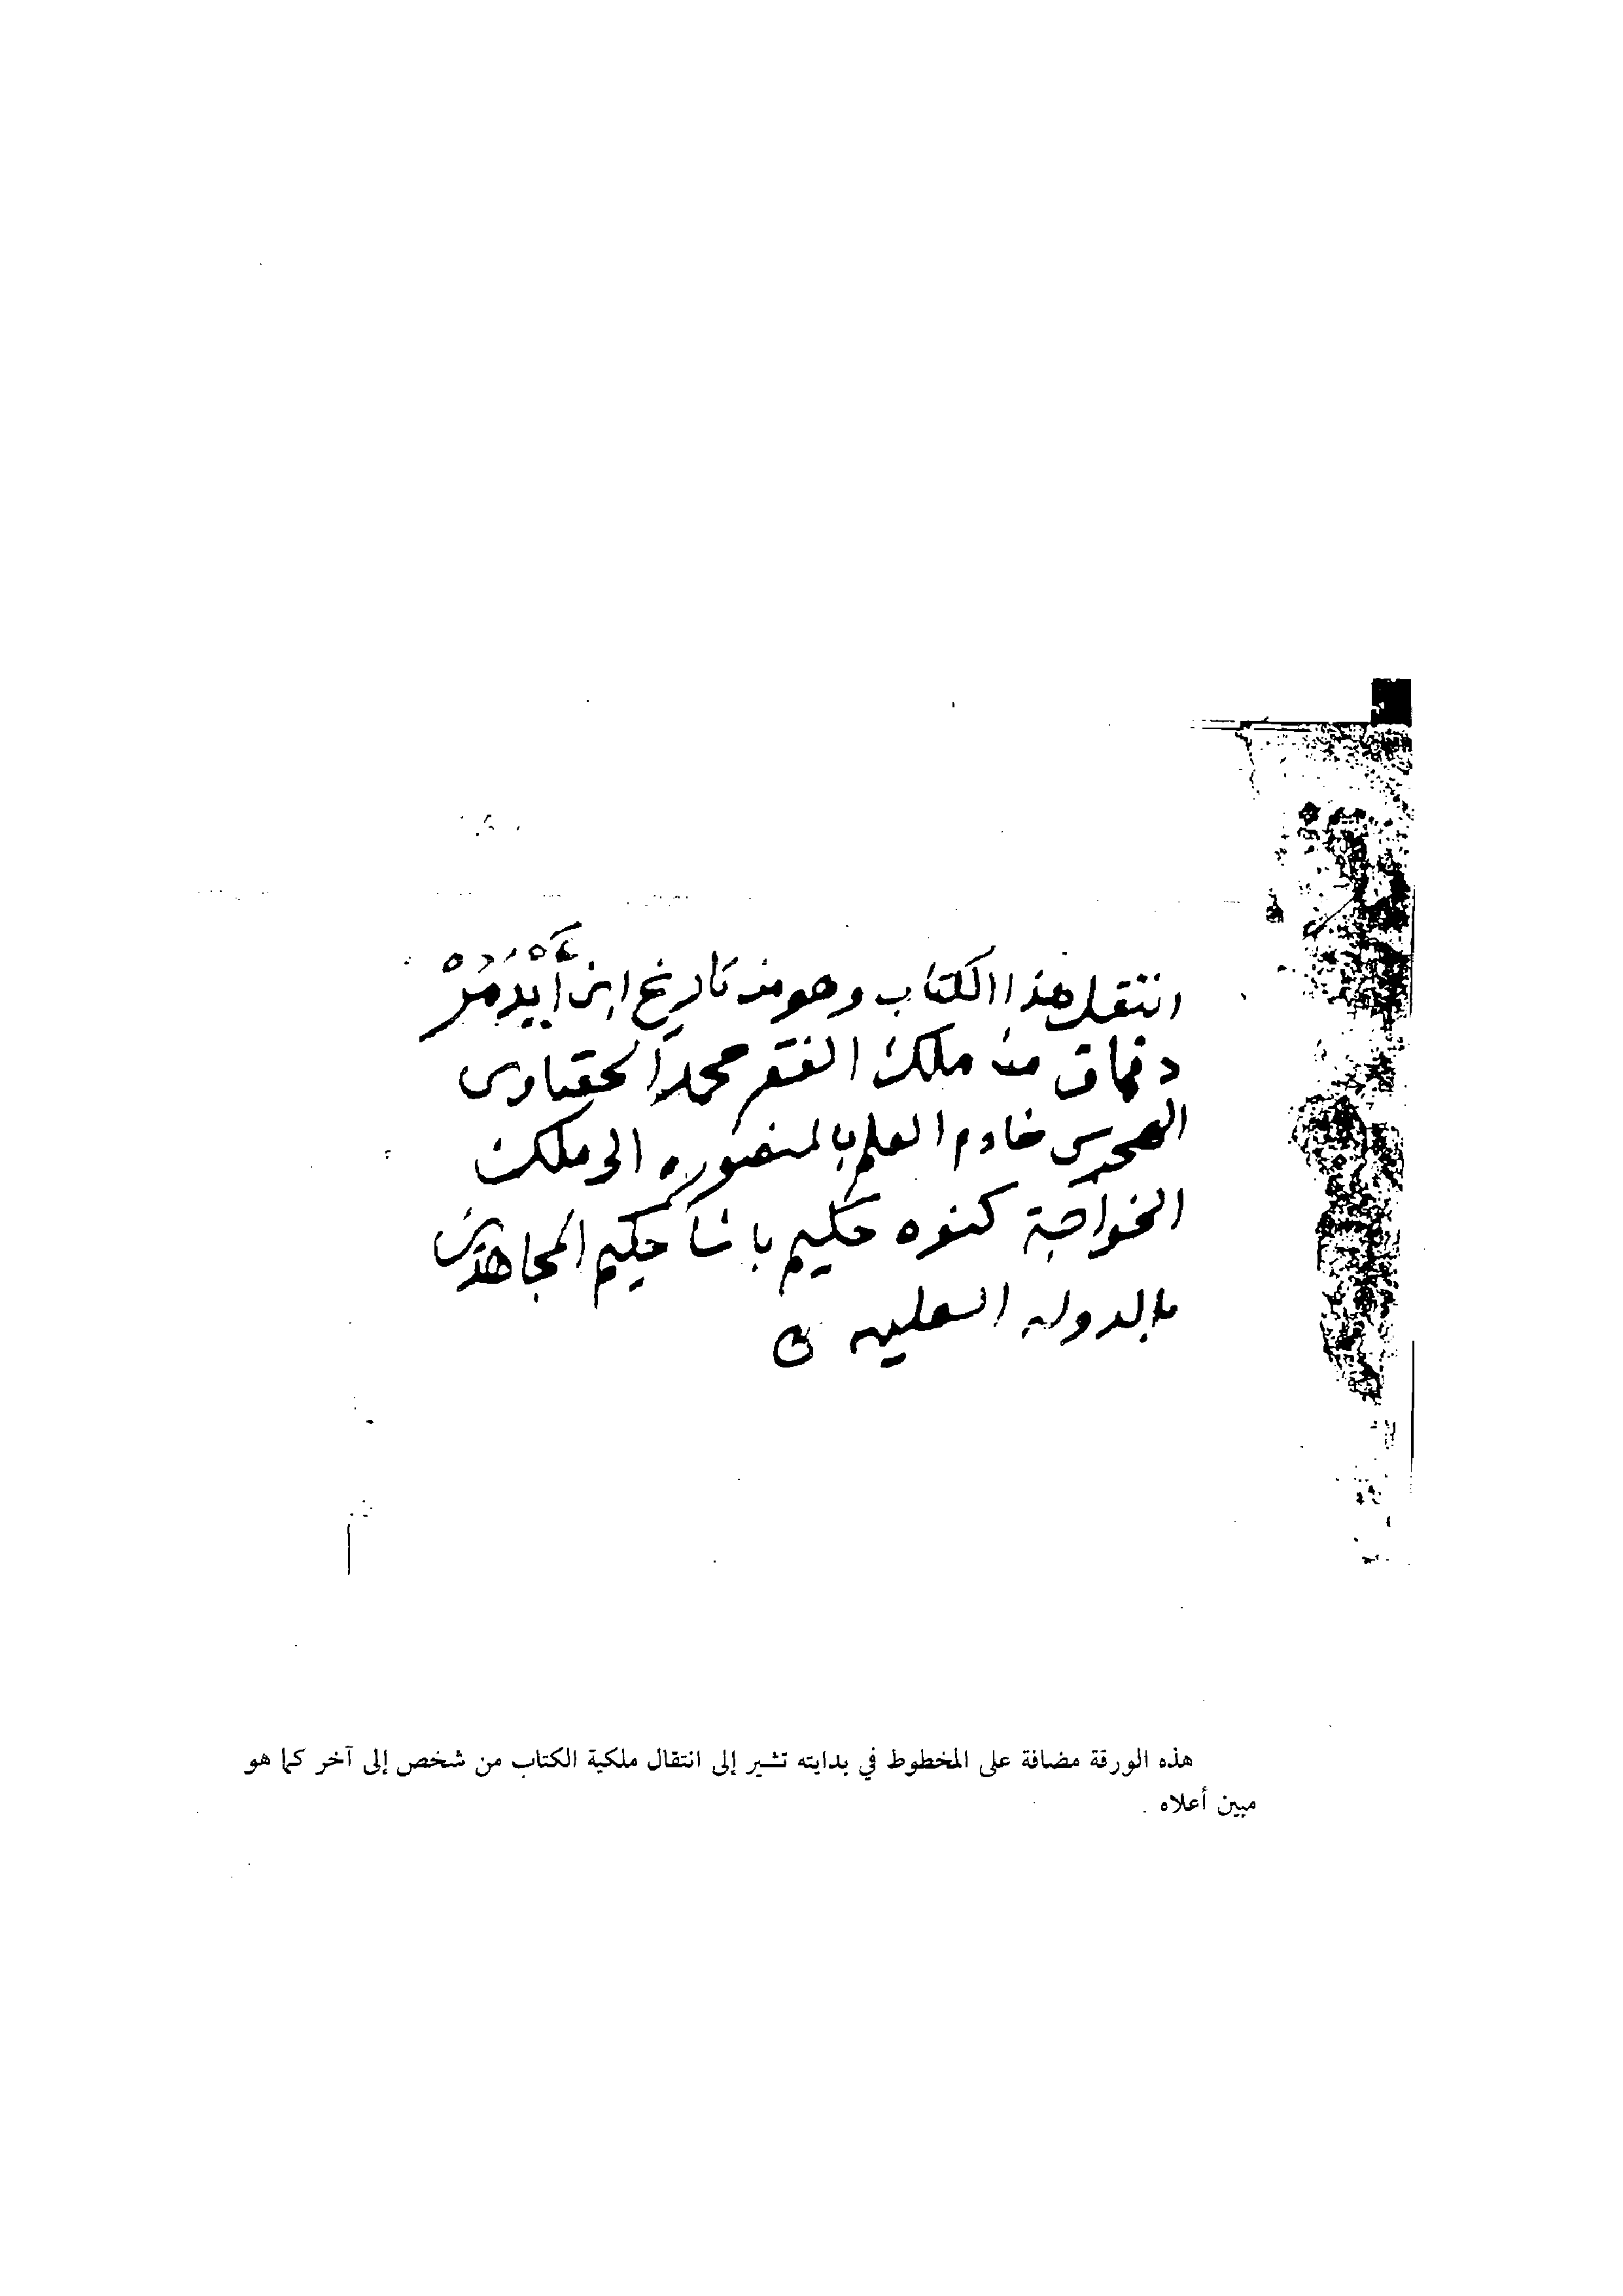 انتقل هذا الكتاب وهو من تاريخ ابن أَيْدَمُرْ
دقماق من ملك الفقير محمد
خادم العلم بالمنصوره الى ملك
الخواجة كنوه حكيم باشا حكيم المجاهدين
بالدوله العليه
هذه الورقة مضافة على المخطوط في بدايته تشير إلى انتقال ملكية الكتاب من شخص إلى آخر كما هو
مبين أعلاه .